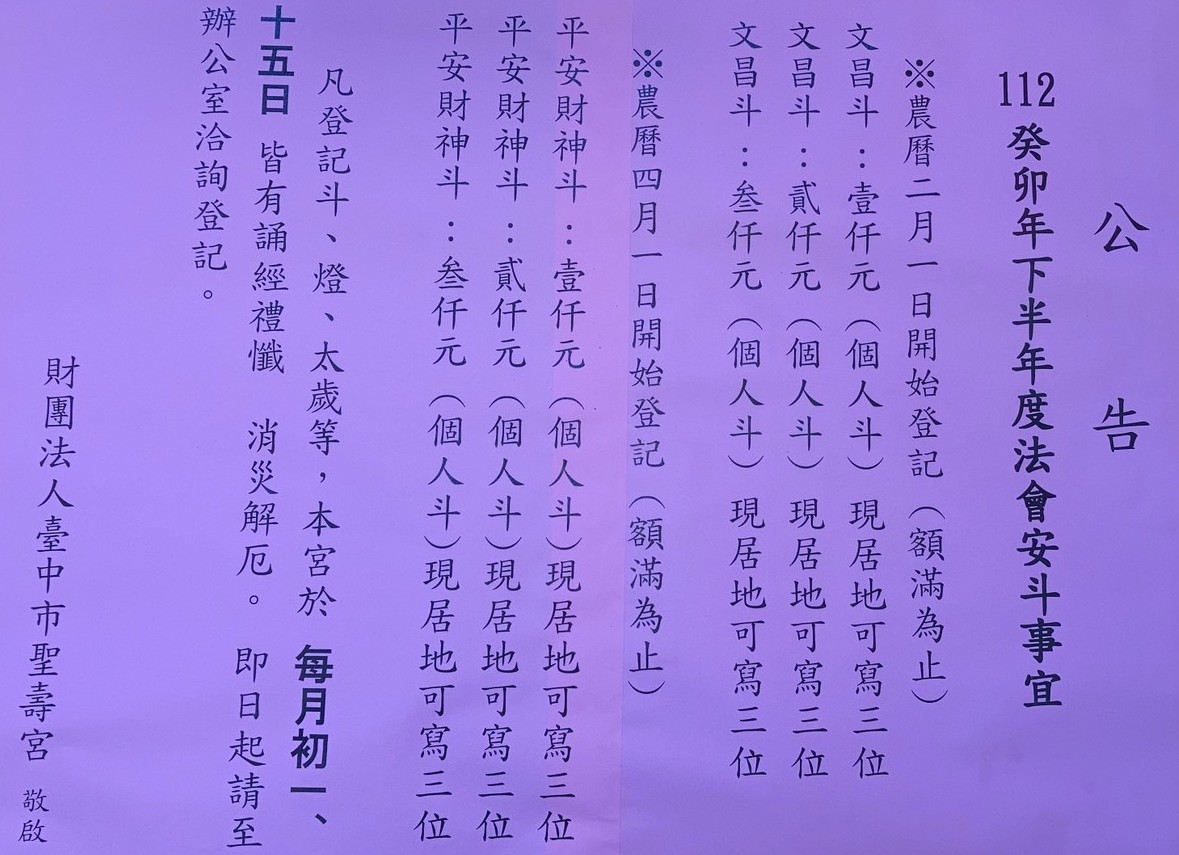 公告
112癸卯年下半年度法會安斗事宜
※農曆二月一日開始登記（額滿為止）
文昌斗：壹仟元（個人斗）現居地可寫三位
文昌斗：貳仟元（個人斗）現居地可寫三位
文昌斗：叁仟元（個人斗）現居地可寫三位
※農曆四月一日開始登記（額滿為止）
平安財神斗：壹仟元（個人斗）現居地可寫三位
平安財神斗：貳仟元（個人斗）現居地可寫三位
平安財神斗：叁仟元（個人斗）現居地可寫三位
凡登記斗、燈、太歲等，本宮於 每月初一、
十五日 皆有誦經禮懺 消災解厄。 即日起請至
辦公室洽詢登記。
財團法人臺中市聖壽宮 敬啟